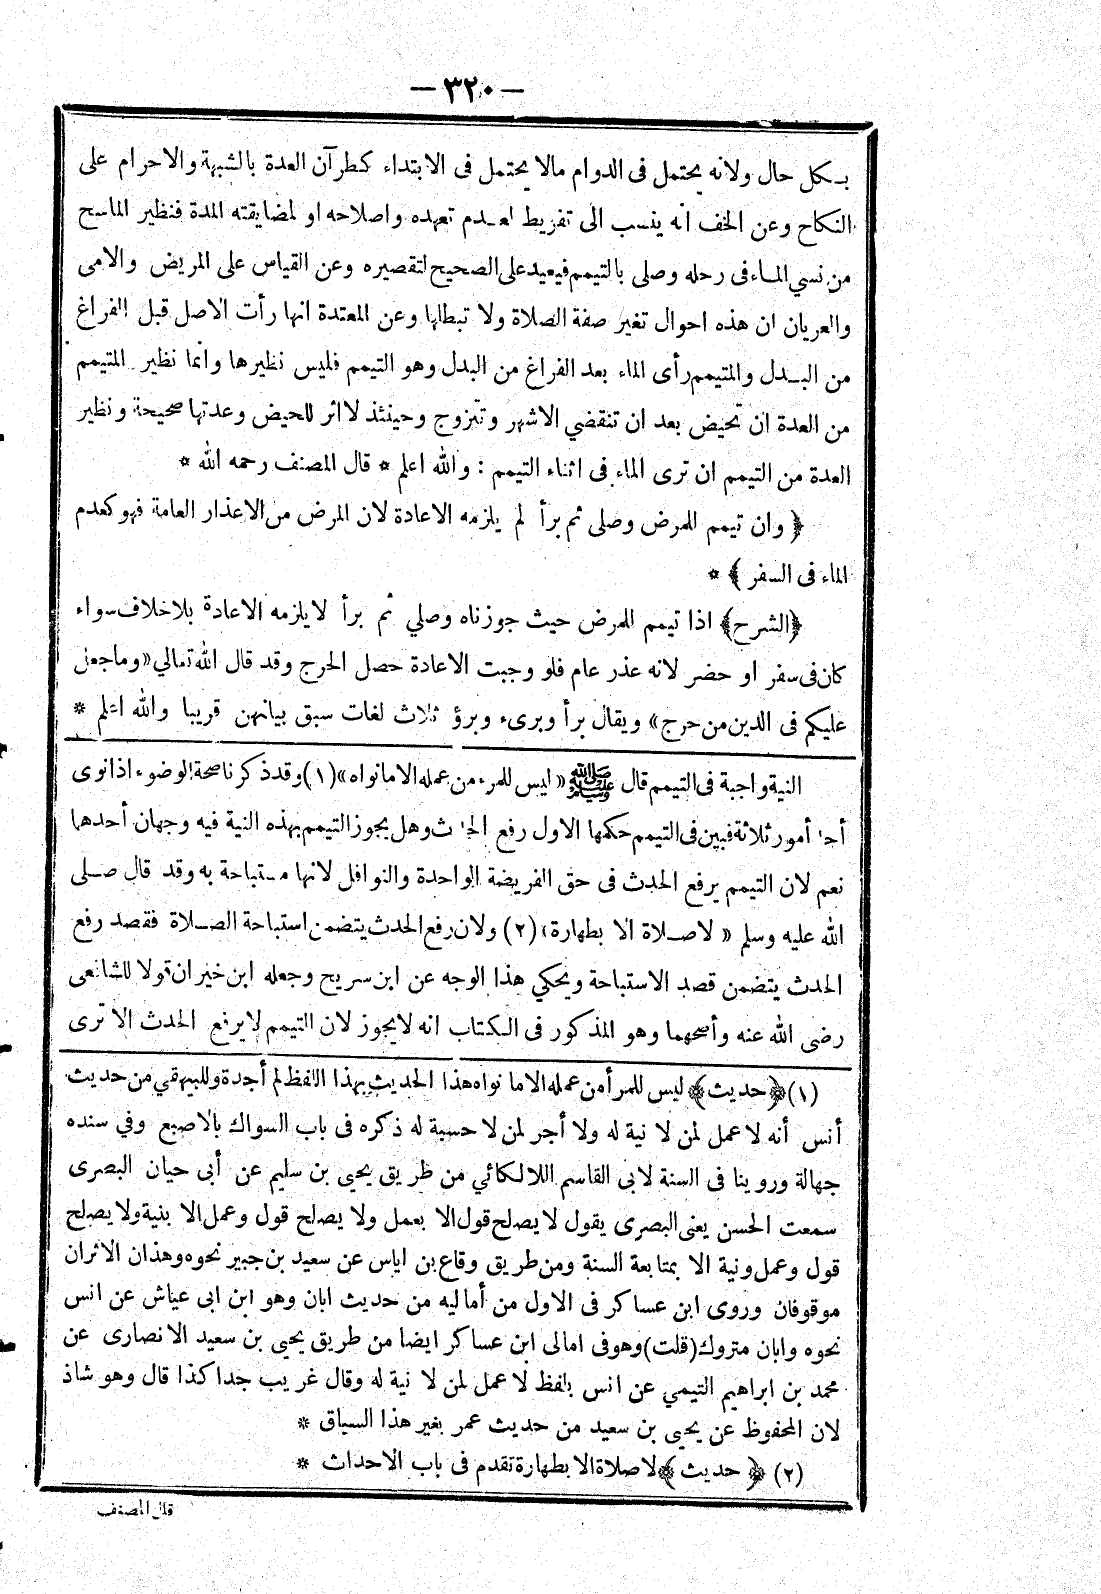 — ٣٢٠ —
بـكل حال ولانه يحتمل فى الدوام مالا يحتمل فى الابتداء كطرآن العدة بالشبهة والاحرام على
النكاح وعن الخف انه ينسب الى تفريط لعـدم تعهده واصلاحه او لمضايقته المدة فنظير الماسح
من نسي المـاء فى رحله وصلى بالتيمم فيعيد على الصحيح لتقصيره وعن القياس على المريض والامى
والعريان ان هذه احوال تغير صفة الصلاة ولا تبطلها وعن المعتدة انها رأت الاصل قبل الفراغ
من البـدل والمتيمم رأى الماء بعد الفراغ من البدل وهو التيمم فليس نظيرها وانما نظير المتيمم
من العدة ان تحيض بعد ان تنقضي الاشهر وتتزوج وحينئذ لا اثر للحيض وعدتها صحيحة ونظير
العدة من التيمم ان ترى الماء فى اثناء التيمم : والله اعلم * قال المصنف رحمه الله *
﴿ وان تيمم للمرض وصلى ثم برأ لم يلزمه الاعادة لان المرض من الاعذار العامة فهو كعدم
الماء فى السفر ﴾ *
﴿الشرح﴾ اذا تيمم للمرض حيث جوزناه وصلي ثم برأ لا يلزمه الاعادة بلا خلاف سواء
كان فى سفر او حضر لانه عذر عام فلو وجبت الاعادة حصل الحرج وقد قال الله تعالي «وما جعل
عليكم فى الدين من حرج» ويقال برأ وبرىء وبرؤ ثلاث لغات سبق بيانهن قريبا والله اعلم *
النية واجبة فى التيمم قال ﷺ « ليس للمرء من عمله الا ما نواه» (١) وقد ذكرنا صحة الوضوء اذا نوى
أحد أمور ثلاثة فبين فى التيمم حكمها الاول رفع الحدث وهل يجوز التيمم بهذه النية فيه وجهان أحدهما
نعم لان التيمم يرفع الحدث فى حق الفريضة الواحدة والنوافل لانها مستباحة به وقد قال صـلى
الله عليه وسلم « لا صـلاة الا بطهارة» (٢) ولان رفع الحدث يتضمن استباحة الصـلاة فقصد رفع
الحدث يتضمن قصد الاستباحة ويحكي هذا الوجه عن ابن سريج وجعله ابن خيران قولا للشافعى
رضى الله عنه وأصحهما وهو المذكور فى الكتاب انه لا يجوز لان التيمم لا يرفع الحدث الا ترى
(١) ﴿حديث﴾ ليس للمرأ من عمله الا ما نواه هذا الحديث بهذا اللفظ لم أجدة وللبيهقي من حديث
أنس أنه لا عمل لمن لا نية له ولا أجر لمن لا حسبة له ذكره فى باب السواك بالاصبع وفي سنده
جهالة وروينا فى السنة لابى القاسم اللالكائي من طريق يحيي بن سليم عن أبى حيان البصرى
سمعت الحسن يعنى البصرى يقول لا يصلح قول الا بعمل ولا يصلح قول وعمل الا بنية ولا يصلح
قول وعمل ونية الا بمتابعة السنة ومن طريق وقاع بن اياس عن سعيد بن جبير نحوه وهذان الاثران
موقوفان وروى ابن عساكر فى الاول من أماليه من حديث ابان وهو ابن ابى عياش عن انس
نحوه وابان متروك (قلت) وهو فى امالى ابن عساكر ايضا من طريق يحيى بن سعيد الانصارى عن
محمد بن ابراهيم التيمي عن انس بلفظ لا عمل لمن لا نية له وقال غريب جدا كذا قال وهو شاذ
لان المحفوظ عن يحيى بن سعيد من حديث عمر بغير هذا السياق *
(٢) ﴿ حديث ﴾ لا صلاة الا بطهارة تقدم فى باب الاحداث *
قال المصنف